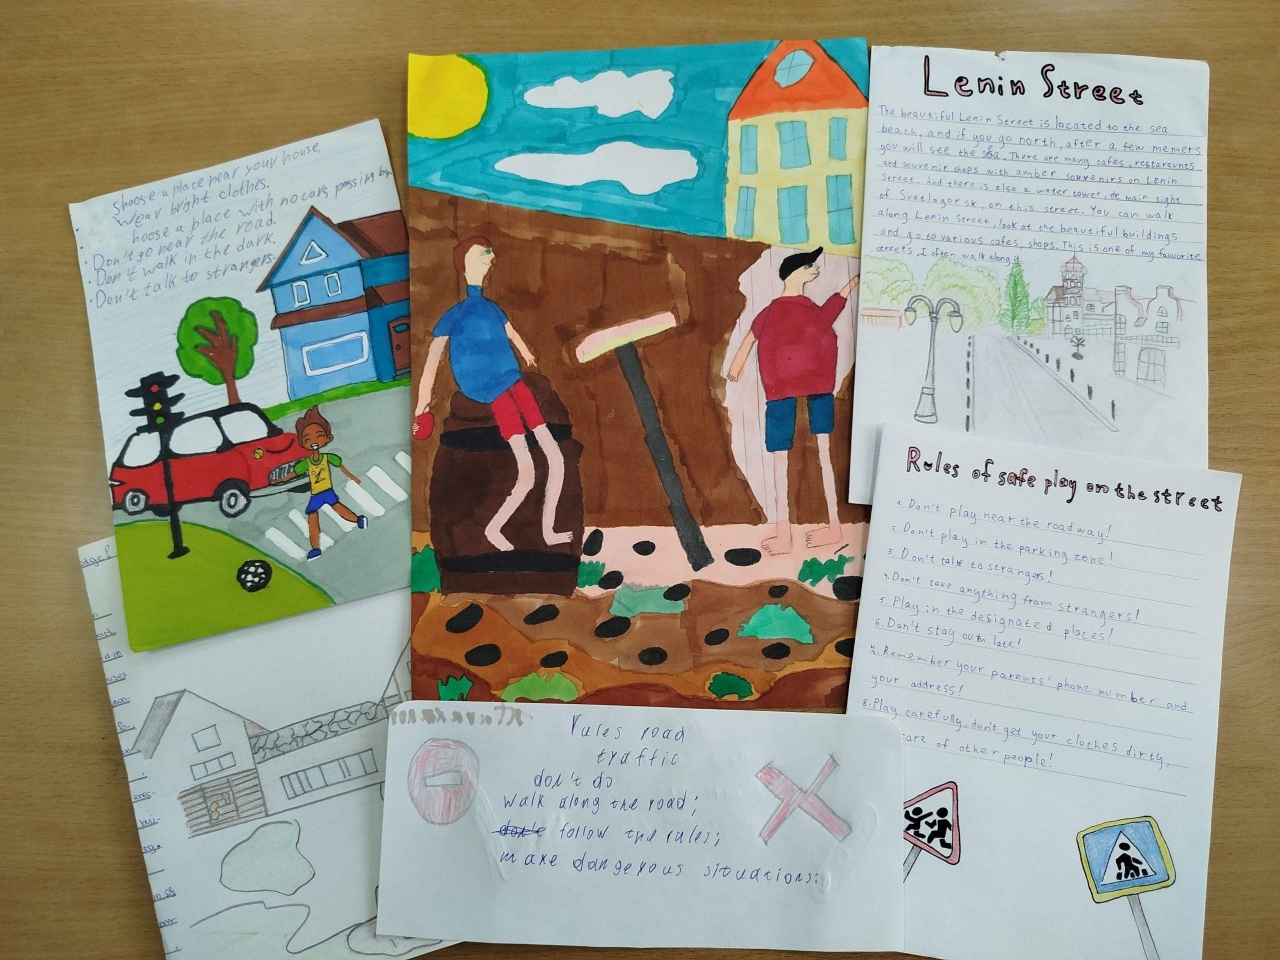 choose a place near your house.
Wear bright clothes.
hoose a place with no cars passing by.
• Don't go near the road.
• Don't walk in the dark.
• Don't talk to strangers.
Z
Lenin Street
The beautiful Lenin Street is located to the sea
beach, and if you go north, after a few memers
you will see the sea. There are many cafes, restaraunts
and souvenir shops with amber souvenirs on Lenin
Street. And there is also a water tower, the main sight
of Svetlogorsk, on this street. You can walk
along Lenin Street, look at the beautiful buildings
and go to various cafes, shops. This is one of my favourite
streets, I often walk along it
Rules of safe play on the street
1. Don't play near the roadway!
2. Don't play in the parking zone!
3. Don't talk to strangers!
4. Don't take anything from strangers!
5. Play in the designated places!
6. Don't stay out late!
7. Remember your parents' phone number and
your address!
8. Play carefully, don't get your clothes dirty,
care of other people!
Rules road
traffic
don't do
walk along the road;
don't follow the rules;
make dangerous situations;